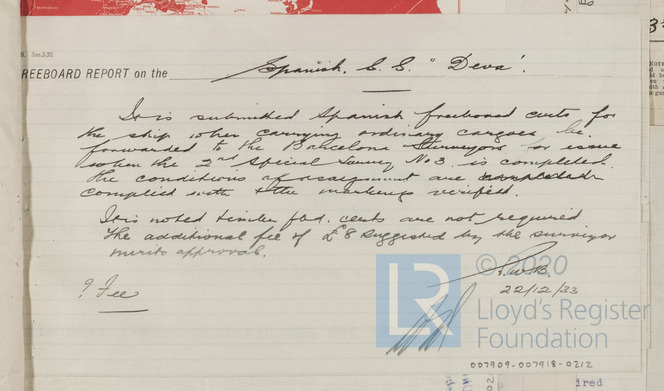 REEBOARD REPORT on the Spanish. S. S. "Deva".
It is submitted Spanish freeboard certs for
the ship when carrying ordinary cargoes be
forwarded to the Barcelona Surveyors for issue
when the 2nd Special Survey No 3 is completed
the conditions of assignment are
complied with & the markings verified.
It is noted timber fbd. certs are not required
The additional fee of £8 suggested by the surveyor
merits approval.
© 2020
22/12/33
? Fee
LR
Lloyd's Register
Foundation
007909-007918-0212
ired